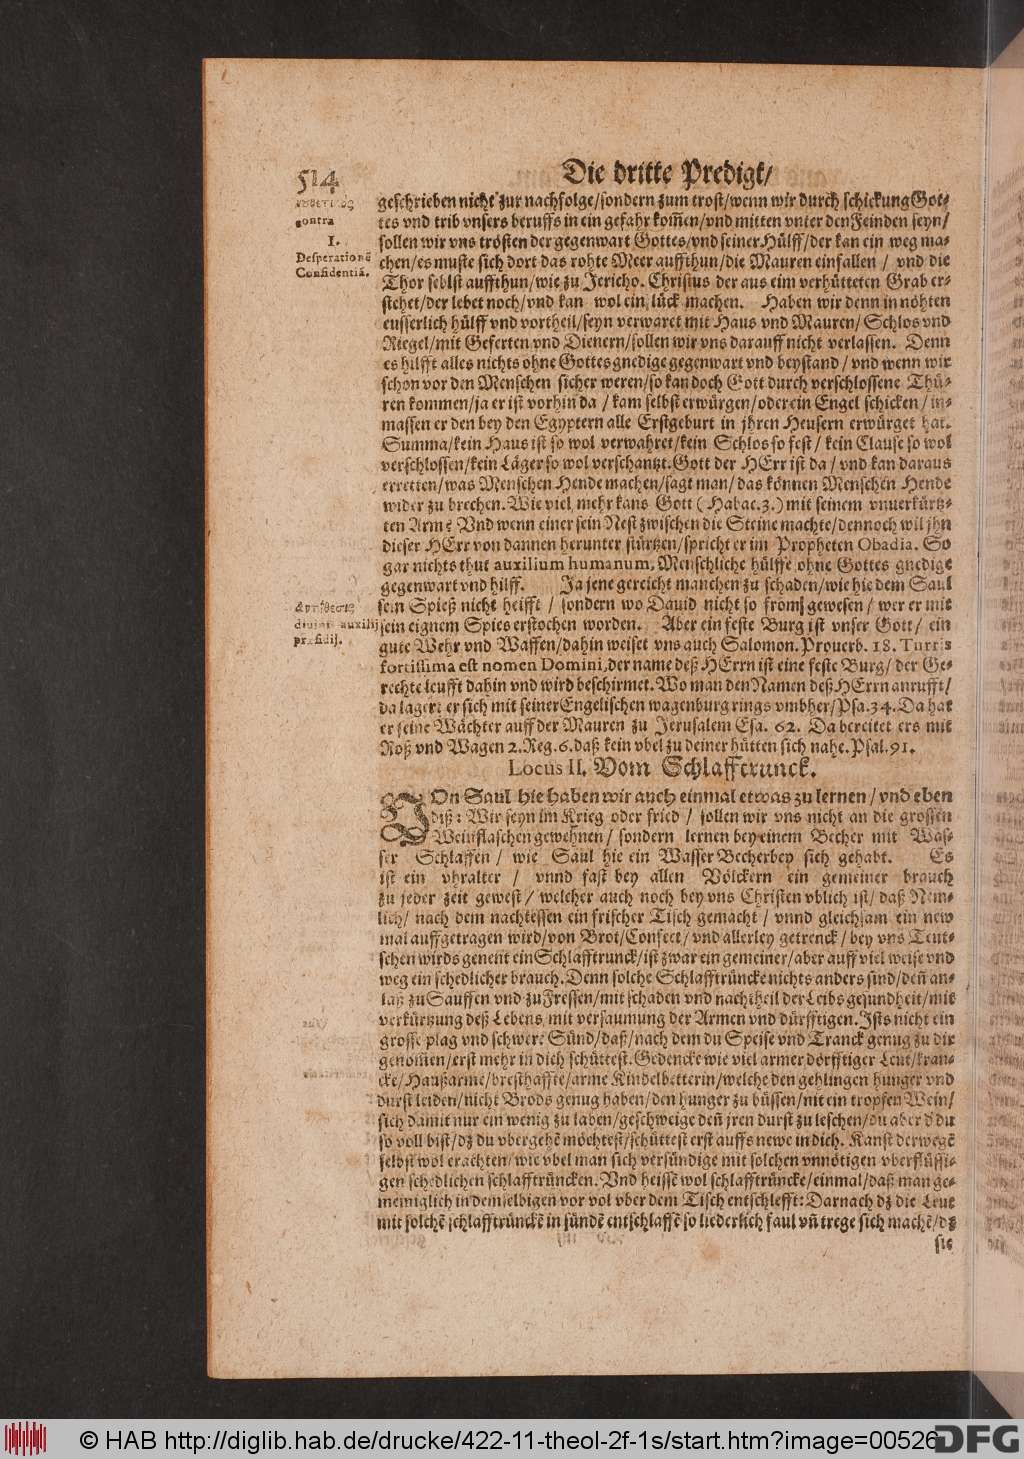 514
Die dritte Predigt/
gontra
I.
Desperationẽ
Confidentiã.
geschrieben nicht zur nachfolge/sondern zum trost/wenn wir durch schickung Got-
tes vnd trib vnsers beruffs in ein gefahr kom̃en/vnd mitten vnter den Feinden seyn/
sollen wir vns trösten der gegenwart Gottes/vnd seiner Hülff/der kan ein weg ma-
chen/es muste sich dort das rohte Meer auffthun/die Mauren einfallen / vnd die
Thor seblst auffthun/wie zu Jericho. Christus der aus eim verhütteten Grab er-
stehet/der lebet noch/vnd kan wol ein lück machen. Haben wir denn in nöhten
eusserlich hülff vnd vortheil/seyn verwaret mit Haus vnd Mauren/ Schlos vnd
Riegel/mit Geferten vnd Dienern/sollen wir vns darauff nicht verlassen. Denn
es hilfft alles nichts ohne Gottes gnedige gegenwart vnd beystand / vnd wenn wir
schon vor den Menschen sicher weren/so kan doch Gott durch verschlossene Thü-
ren kommen/ja er ist vorhin da / kam selbst erwürgen/oder ein Engel schicken / in-
massen er den bey den Egyptern alle Erstgeburt in jhren Heusern erwürget hat.
Summa/kein Haus ist so wol verwahret/kein Schlos so fest / kein Clause so wol
verschlossen/kein Läger so wol verschantzt. Gott der HErr ist da / vnd kan daraus
erretten/was Menschen Hende machen/sagt man/ das können Menschen Hende
wider zu brechen. Wie viel mehr kans Gott ( Habac. 3. ) mit seinem vnuerkürtz-
ten Arm? Vnd wenn einer sein Nest zwischen die Steine machte/dennoch wil jhn
dieser HErr von dannen herunter stürtzen/spricht er im Propheten Obadia. So
gar nichts thut auxilium humanum, Menschliche hülffe ohne Gottes gnedige
gegenwart vnd hilff. Ja jene gereicht manchen zu schaden/wie hie dem Saul
sein Spieß nicht heifft / sondern wo Dauid nicht so from gewesen / wer er mit
sein eignem Spies erstochen worden. Aber ein feste Burg ist vnser Gott / ein
gute Wehr vnd Waffen/dahin weiset vns auch Salomon. Prouerb. 18. Turris
fortissima est nomen Domini, der name deß HErrn ist eine feste Burg/ der Ge-
rechte leufft dahin vnd wird beschirmet. Wo man den Namen deß HErrn anrufft/
da lagert er sich mit seiner Engelischen wagenburg rings vmbher/Psa. 34. Da hat
er seine Wächter auff der Mauren zu Jerusalem Esa. 62. Da bereitet ers mit
Roß vnd Wagen 2. Reg. 6. daß kein vbel zu deiner hütten sich nahe. Psal. 91.
diuini auxilij
præsidij.
Locus II. Vom Schlafftrunck.
VOn Saul hie haben wir auch einmal etwas zu lernen / vnd eben
diß: Wir seyn im Krieg oder fried / sollen wir vns nicht an die grossen
Weinflaschen gewehnen/ sondern lernen bey einem Becher mit Was-
ser Schlaffen / wie Saul hie ein Wasser Becher bey sich gehabt. Es
ist ein vhralter / vnnd fast bey allen Völckern ein gemeiner brauch
zu jeder zeit gewest / welcher auch noch bey vns Christen vblich ist/ daß Nem-
lich/ nach dem nachtessen ein frischer Tisch gemacht / vnnd gleichsam ein new
mal auffgetragen wird/von Brot/Confect/ vnd allerley getrenck / bey vns Teut-
schen wirds genent ein Schlafftrunck/ist zwar ein gemeiner/aber auff viel weise vnd
weg ein schedlicher brauch. Denn solche Schlafftrüncke nichts anders sind/deñ an-
laß zu Sauffen vnd zu Fressen/mit schaden vnd nachtheil der Leibs gesundheit/mit
verkürtzung deß Lebens/ mit versaumung der Armen vnd dürfftigen. Ists nicht ein
grosse plag vnd schwere Sünd/daß/nach dem du Speise vnd Tranck genug zu dir
genom̃en/erst mehr in dich schüttest. Gedencke wie viel armer dörfftiger Leut/kran-
cke/Haußarme/bresthaffte/arme Kindelbetterin/welche den gehlingen hunger vnd
durst leiden/nicht Brods genug haben/den hunger zu büssen/nit ein tropfen Wein/
sich damit nur ein wenig zu laben/geschweige deñ jren durst zu leschen/du aber d̕ du
so voll bist/dz du vbergehẽ möchtest/schüttest erst auffs newe in dich. Kanst derwegẽ
selbst wol erachten/wie vbel man sich versündige mit solchen vnnötigen vberflüssi-
gen schedlichen schlafftrüncken. Vnd heissẽ wol schlafftrüncke/einmal/daß man ge-
meiniglich in demselbigen vor vol vber dem Tisch entschlefft: Darnach dz die Leut
mit solchẽ schlafftrünckẽ in sündẽ entschlaffẽ so liederlich faul vñ trege sich machẽ/dz
sie
© HAB http://diglib.hab.de/drucke/422-11-theol-2f-1s/start.htm?image=00526
DFG